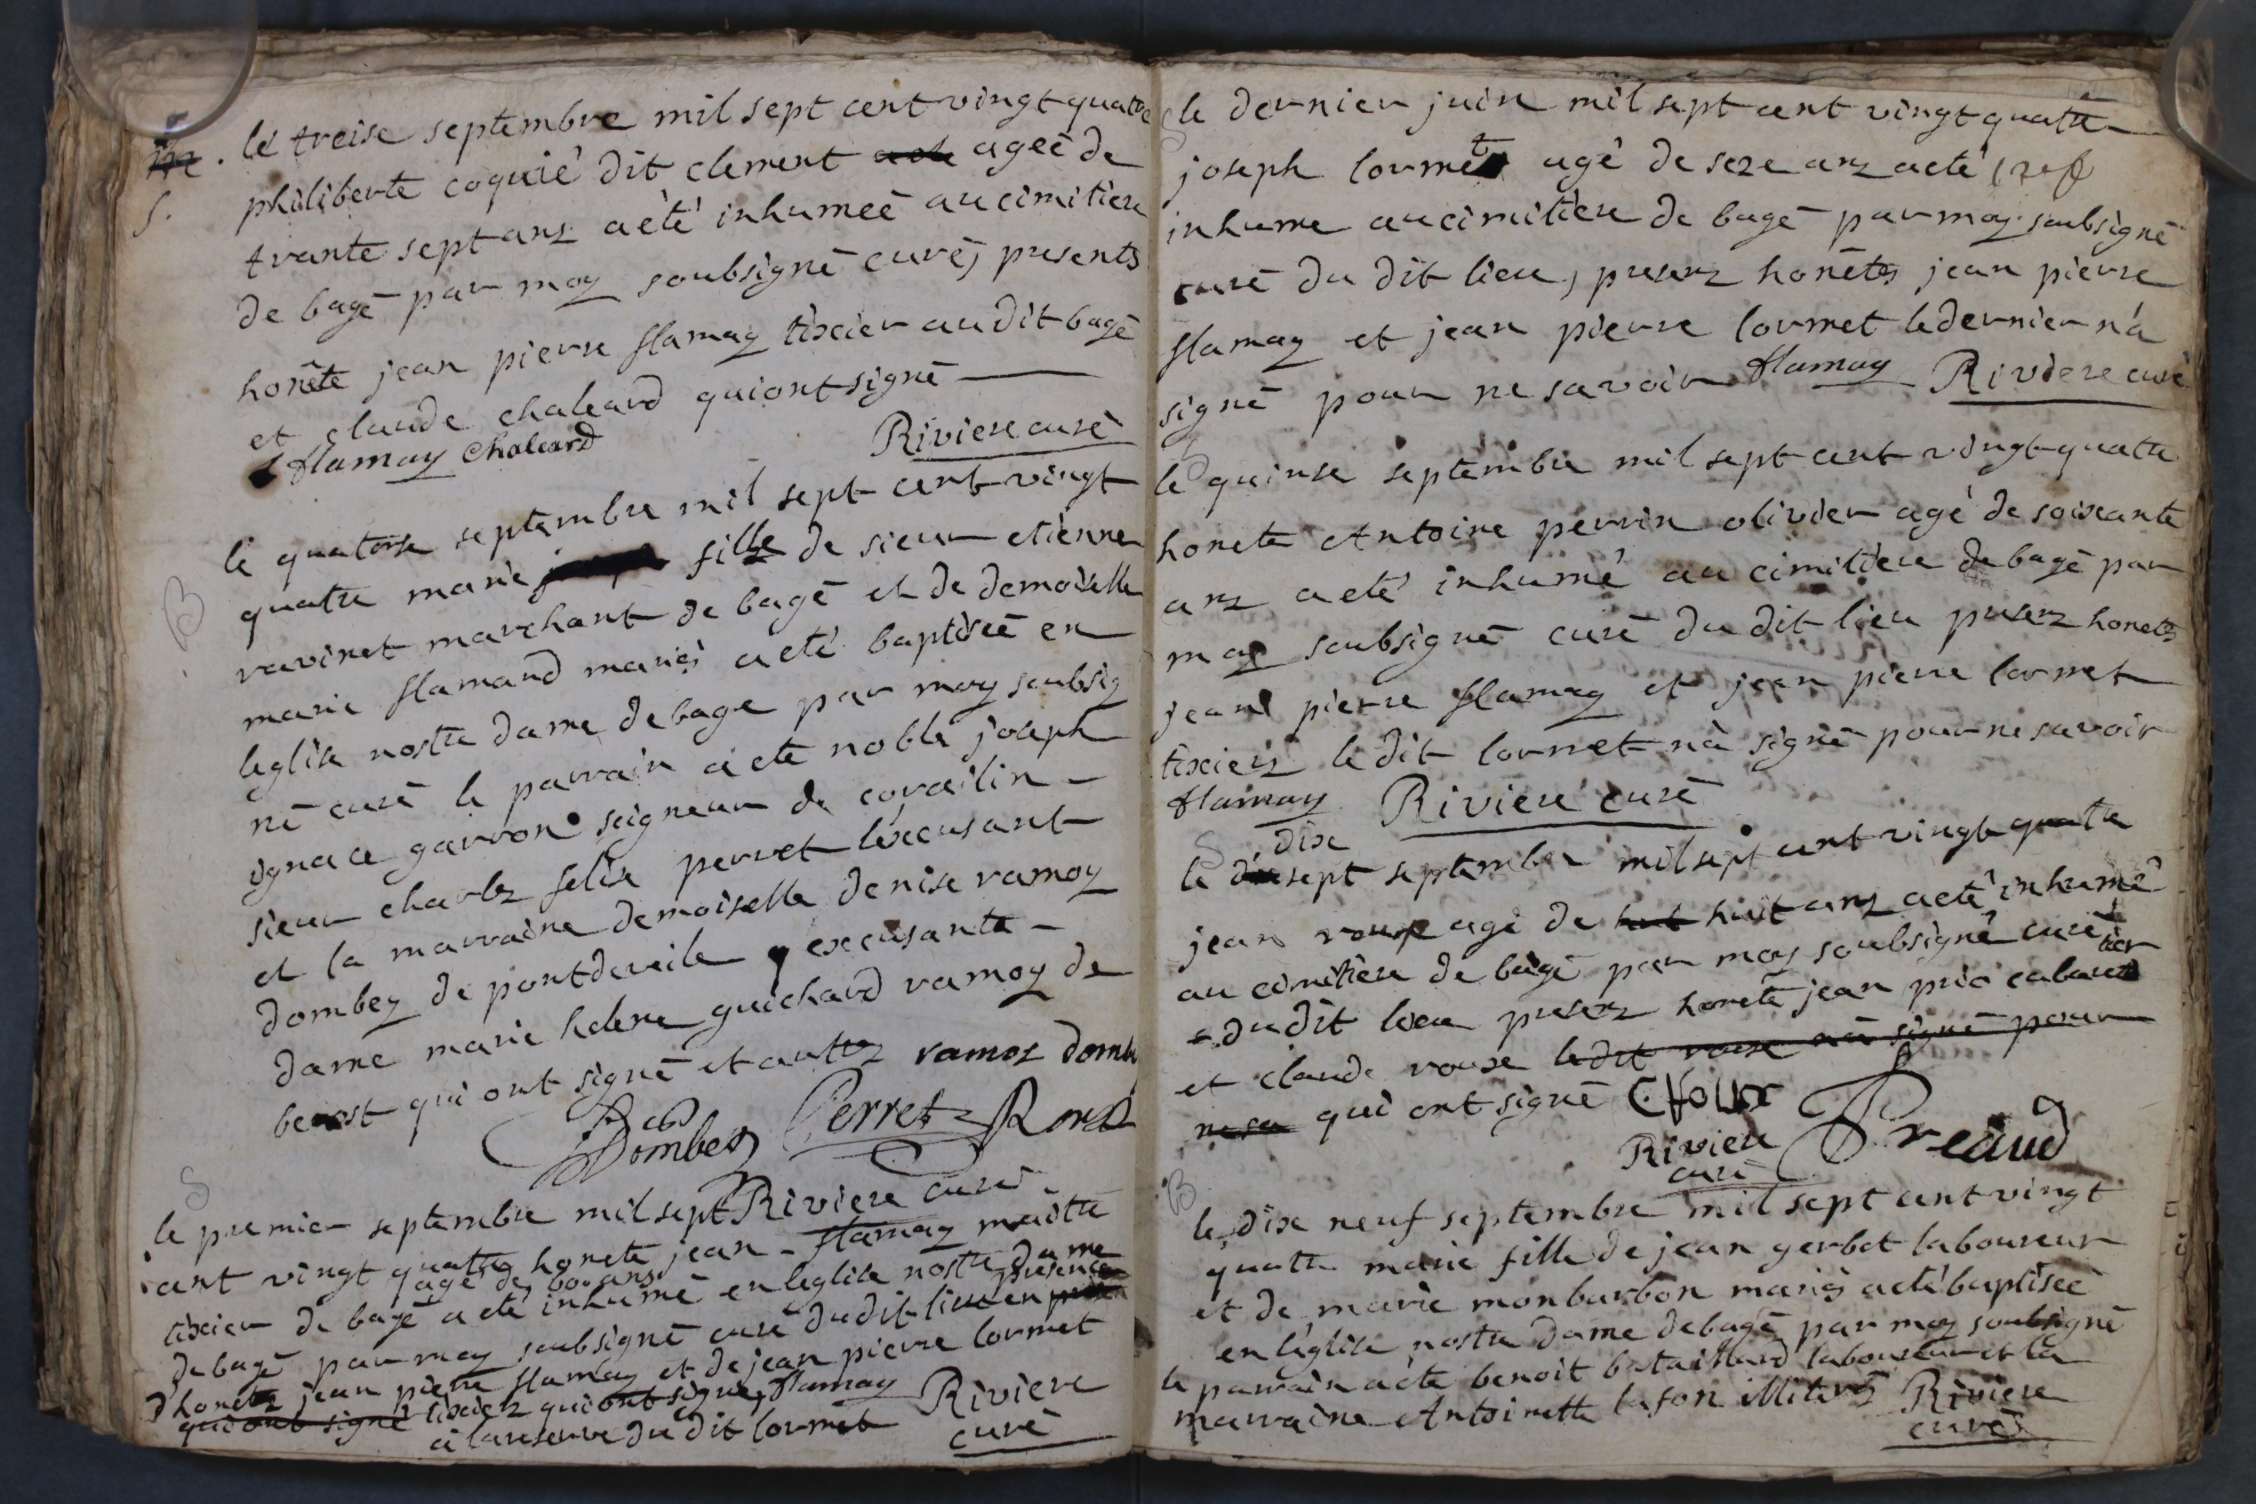 le treise septembre mil sept cent vingt quatre
S.
philiberte coquié dit clement ageé de
trante sept ans a été inhumeé au cimitiere
de bagé par moy soubsigné curé, presents
honête jean pierre flamay tixier au dit bagé
et claude chaleard qui ont signé
flamay Chaleard
Riviere curé
B
le quatorse septembre mil sept cent vingt
quatre marie fille de sieur etienne
ravinet marchant de bagé et de demoiselle
marie flamand mariés a eté baptiseé en
leglise nostre dame de bagé par moy soubsig
né curé le parrain a eté noble joseph
ignace garron seigneur de
sieur charles felix perret lexcusant
et la marraine demoiselle denise ramoy
dombey de pontdeveile excusante
dame marie helene guichard ramoy de
benost qui ont signé et autres ramoz domb
Dombey Perret
Riviere curé
S
le premier septembre mil sept
cent vingt quatre honete jean flamay maitre
agé de 60 ans
tixier de bagé a eté inhumé en leglise nostre dame
de bagé par moy soubsigné curé du dit lieu en presence
d'honetes jean pierre flamay et de jean pierre lormet
qui ont signé tixiers qui ont signé, flamay
a la reserve du dit lormet
Riviere
curé
S
le dernier juin mil sept cent vingt quatre
joseph lormet agé de seze ans a eté
inhume au cimitiere de bagé par moy soubsigné
curé du dit lieu, presens honêtes jean pierre
flamay et jean pierre lormet le dernier n'a
signé pour ne savoir flamay Riviere curé
S
le quinse septembre mil sept cent vingt quatre
honete Antoine perrin olivier agé de soixante
ans a eté inhumé au cimitiere de bagé par
moy soubsigné curé du dit lieu presens honetes
jean pierre flamay et jean pierre lormet
tixiers le dit lormet n'a signé pour ne savoir
flamay Riviere curé
S
dix
le sept septembre mil sept cent vingt quatre
jean roux agé de huit ans a eté inhumé
au cimitiere de bagé par moy soubsigné curé
du dit lieu presens honete jean prio cabaretier
et claude rouse le dit rouse n'a signé pour
ne sa qui ont signé C Roux
Riviere
curé
Preaud
B
le dix neuf septembre mil sept cent vingt
quatre marie fille de jean gerbet laboureur
et de marie monbarbon mariés a eté baptiseé
en l'eglise nostre dame de bagé par moy soubsigné
le parrain a eté benoit bataillard laboureur et la
marraine Antoinette lafon illiterés Riviere
curé